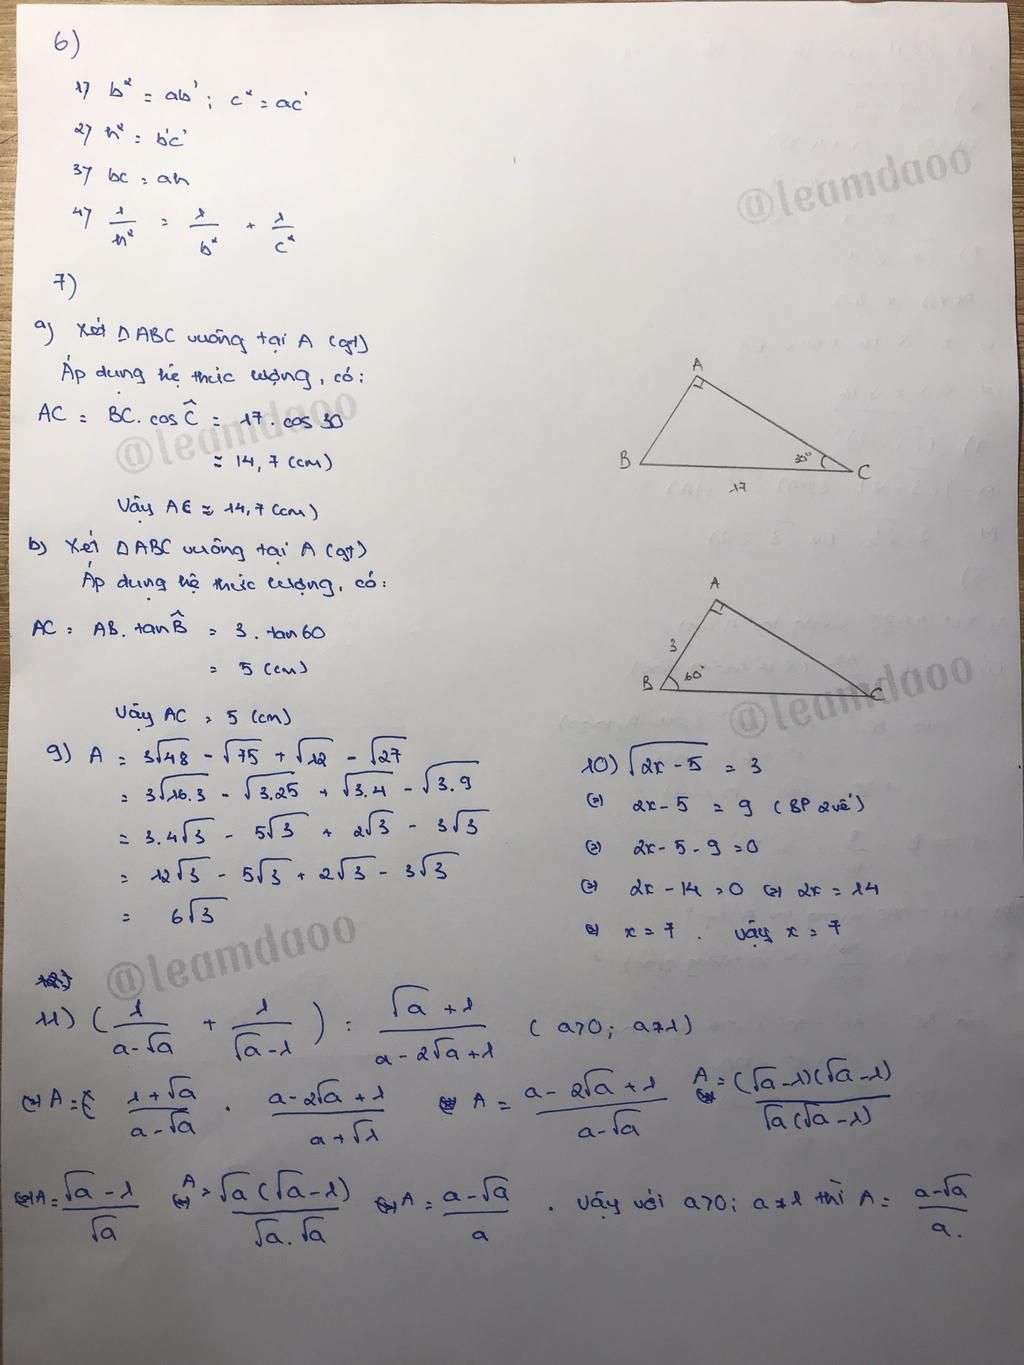 6)
1) b² = ab' ; c² = ac'
2) h² = b'c'
3) bc = ah
4) 1/h² = 1/b² + 1/c²
@leamdaoo
7)
a) Xét △ABC vuông tại A (gt)
Áp dụng hệ thức lượng, có:
AC = BC. cos Ĉ = 17. cos 30
≈ 14,7 (cm)
Vậy AC ≈ 14,7 (cm)
@leamdaoo
A
B
30°
C
17
b) Xét △ABC vuông tại A (gt)
Áp dụng hệ thức lượng, có:
AC = AB. tan B̂ = 3. tan 60
= 5 (cm)
Vậy AC = 5 (cm)
A
3
B
60°
C
@leamdaoo
9) A = 3√48 - √75 + √12 - √27
= 3√16.3 - √3.25 + √3.4 - √3.9
= 3.4√3 - 5√3 + 2√3 - 3√3
= 12√3 - 5√3 + 2√3 - 3√3
= 6√3
10) √2x-5 = 3
(=) 2x-5 = 9 (BP 2 vế)
(=) 2x-5-9=0
(=) 2x-14=0 (=) 2x=14
(=) x=7. Vậy x=7
@leamdaoo
11) (1/(a-√a) + 1/(√a-1)) : (√a+1)/(a-2√a+1) (a>0; a≠1)
(=) A = (1+√a)/(a-√a) . (a-2√a+1)/(a+√1) A = (a-2√a+1)/(a-√a) A = (√a-1)(√a-1)/(√a(√a-1))
A = (√a-1)/√a A = √a(√a-1)/(√a.√a) A = (a-√a)/a . Vậy với a>0; a≠1 thì A = (a-√a)/a.